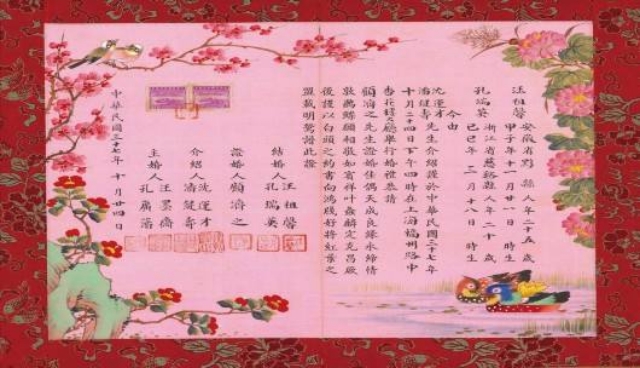 汪祖馨 安徽省黟縣人年二十五歲
甲子年十一月廿一日 時生
孔瑞英 浙江省慈谿縣人年二十歲
己巳年二月十八日 時生
今由
沈運才
潘 壽 先生介紹謹於中華民國三十七年
十月二十四日下午四時在上海福州路中
杏花樓大廳舉行婚禮恭請
顧濟之先生證婚佳偶天成良緣永締情
敦鶼鰈願相敬如賓祥叶螽麟定克昌厥
後謹以白頭之約書向鴻箋好將紅葉之
盟載明鴛譜此證
結婚人 汪祖馨
孔瑞英
證婚人 顧濟之
介紹人 沈運才
潘 壽
主婚人 汪 齋
孔廣藩
中華民國三十七年十月廿四日